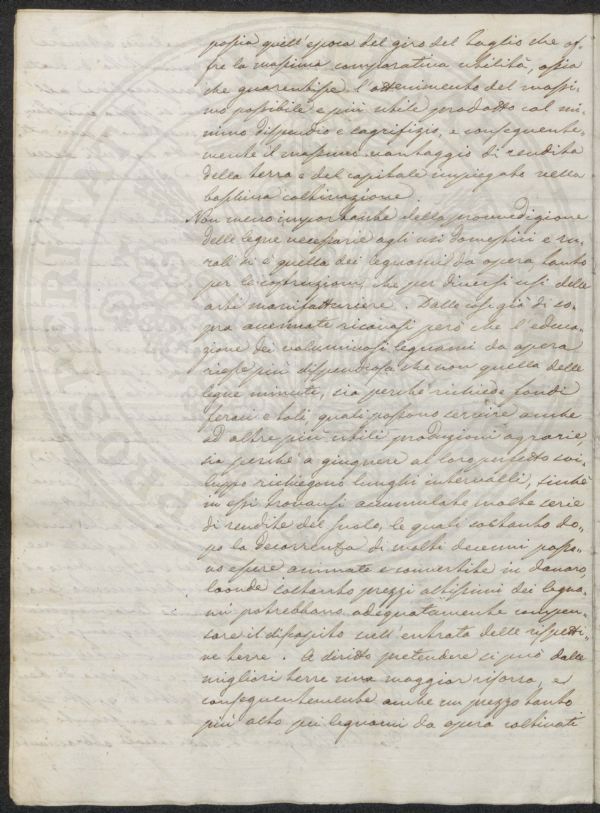 possia quell'epoca del giro del taglio che of-
fre la massima comparativa utilità, ossia
che guarentisse l'ottenimento del massi-
mo possibile e più utile prodotto col mi-
nimo dispendio e sagrifizio, e conseguente-
mente il massimo vantaggio di rendita
della terra e del capitale impiegato nella
boschiva coltivazione.
Non meno importante della provvedigione
delle legne necessarie agli usi domestici e ru-
rali si è quella dei legnami da opera tanto
per le costruzioni, che per diversi usi delle
arti manifatturiere. Dalle cose già di so-
pra accennate ricavasi però che l'educa-
zione dei voluminosi legnami da opera
riesce più dispendiosa che non quella delle
legne minute, sia perchè richiede fondi
feraci e tali quali possono servire anche
ad altre più utili produzioni agrarie,
sia perchè a giugnere al loro perfetto svi-
luppo richieggono lunghi intervalli, sinchè
in essi trovansi accumulate molte serie
di rendite del suolo, le quali soltanto do-
po la decorrenza di molti decenni posso-
no essere animate e convertite in danaro,
laonde soltanto prezzi altissimi dei legna-
mi potrebbano adeguatamente compen-
sare il discapito nell'entrata delle rispetti-
ve terre. A diritto pretendere si può dalle
migliori terre una maggior risorsa, e
conseguentemente anche un prezzo tanto
più alto pei legnami da opera coltivati
PROSPERITATI